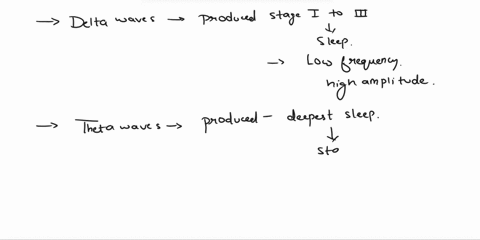 → Delta waves → produced stage I to III
↓
sleep.
→ Low frequency.
high amplitude.
→ Theta waves → produced - deepest sleep.
↓
sto